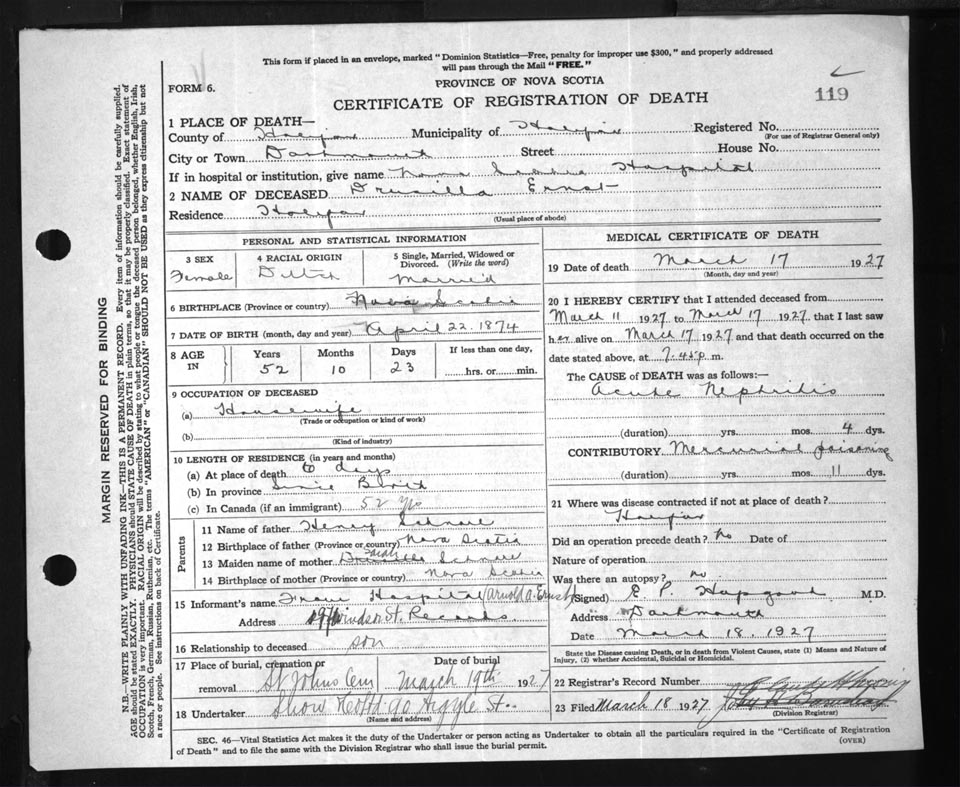 This form if placed in an envelope, marked "Dominion Statistics—Free, penalty for improper use $300," and properly addressed
will pass through the Mail "FREE."
FORM 6.
PROVINCE OF NOVA SCOTIA
CERTIFICATE OF REGISTRATION OF DEATH
119
1 PLACE OF DEATH—
County of Halifax Municipality of Halifax Registered No.
(For use of Registrar General only)
City or Town Dartmouth Street House No.
If in hospital or institution, give name Nova Scotia Hospital
2 NAME OF DECEASED Drusilla Ernst
Residence Halifax
(Usual place of abode)
PERSONAL AND STATISTICAL INFORMATION
3 SEX
Female
4 RACIAL ORIGIN
Dutch
5 Single, Married, Widowed or
Divorced. (Write the word)
Married
6 BIRTHPLACE (Province or country) Nova Scotia
7 DATE OF BIRTH (month, day and year) April 22. 1874
8 AGE
IN
Years
52
Months
10
Days
23
If less than one day,
hrs. or min.
9 OCCUPATION OF DECEASED
(a) Housewife
(Trade or occupation or kind of work)
(b)
(Kind of industry)
10 LENGTH OF RESIDENCE (in years and months)
(a) At place of death 6 days
(b) In province Since Birth
(c) In Canada (if an immigrant) 52 yrs
Parents
11 Name of father Henry
12 Birthplace of father (Province or country) Nova Scotia
13 Maiden name of mother Sarah
14 Birthplace of mother (Province or country) Nova Scotia
15 Informant's name From Hospital (Arnold A. Ernst)
Address Windsor St. Records
16 Relationship to deceased son
17 Place of burial, cremation or
removal St Johns Cem
Date of burial
March 19th 1927
18 Undertaker Snow & Co Ltd 90 Argyle St.
(Name and address)
MEDICAL CERTIFICATE OF DEATH
19 Date of death March 17 1927
(Month, day and year)
20 I HEREBY CERTIFY that I attended deceased from
March 11 1927 to March 17 1927 that I last saw
her alive on March 17 1927 and that death occurred on the
date stated above, at 7.45 p. m.
The CAUSE of DEATH was as follows:—
Acute Nephritis
(duration) yrs. mos. 4 dys.
CONTRIBUTORY Mercurial poisoning
(duration) yrs. mos. 11 dys.
21 Where was disease contracted if not at place of death?
Halifax
Did an operation precede death? No Date of
Nature of operation
Was there an autopsy? no
(Signed) E. P. Hapgood M.D.
Address Dartmouth
Date March 18. 1927
State the Disease causing Death, or in death from Violent Causes, state (1) Means and Nature of
Injury, (2) whether Accidental, Suicidal or Homicidal.
22 Registrar's Record Number
23 Filed March 18 1927
(Division Registrar)
SEC. 46—Vital Statistics Act makes it the duty of the Undertaker or person acting as Undertaker to obtain all the particulars required in the "Certificate of Registration
of Death" and to file the same with the Division Registrar who shall issue the burial permit.
(OVER)
MARGIN RESERVED FOR BINDING
N.B.—WRITE PLAINLY WITH UNFADING INK—THIS IS A PERMANENT RECORD. Every item of information should be carefully supplied.
AGE should be stated EXACTLY. PHYSICIANS should STATE CAUSE OF DEATH in plain terms, so that it may be properly classified. Exact statement of
OCCUPATION is very important. RACIAL ORIGIN will be described by stating to what people or tongue the deceased person belonged, whether English, Irish,
Scotch, French, German, Russian, Ruthenian, etc. The terms "AMERICAN" or "CANADIAN" SHOULD NOT BE USED as they express citizenship but not
a race or people. See instructions on back of Certificate.